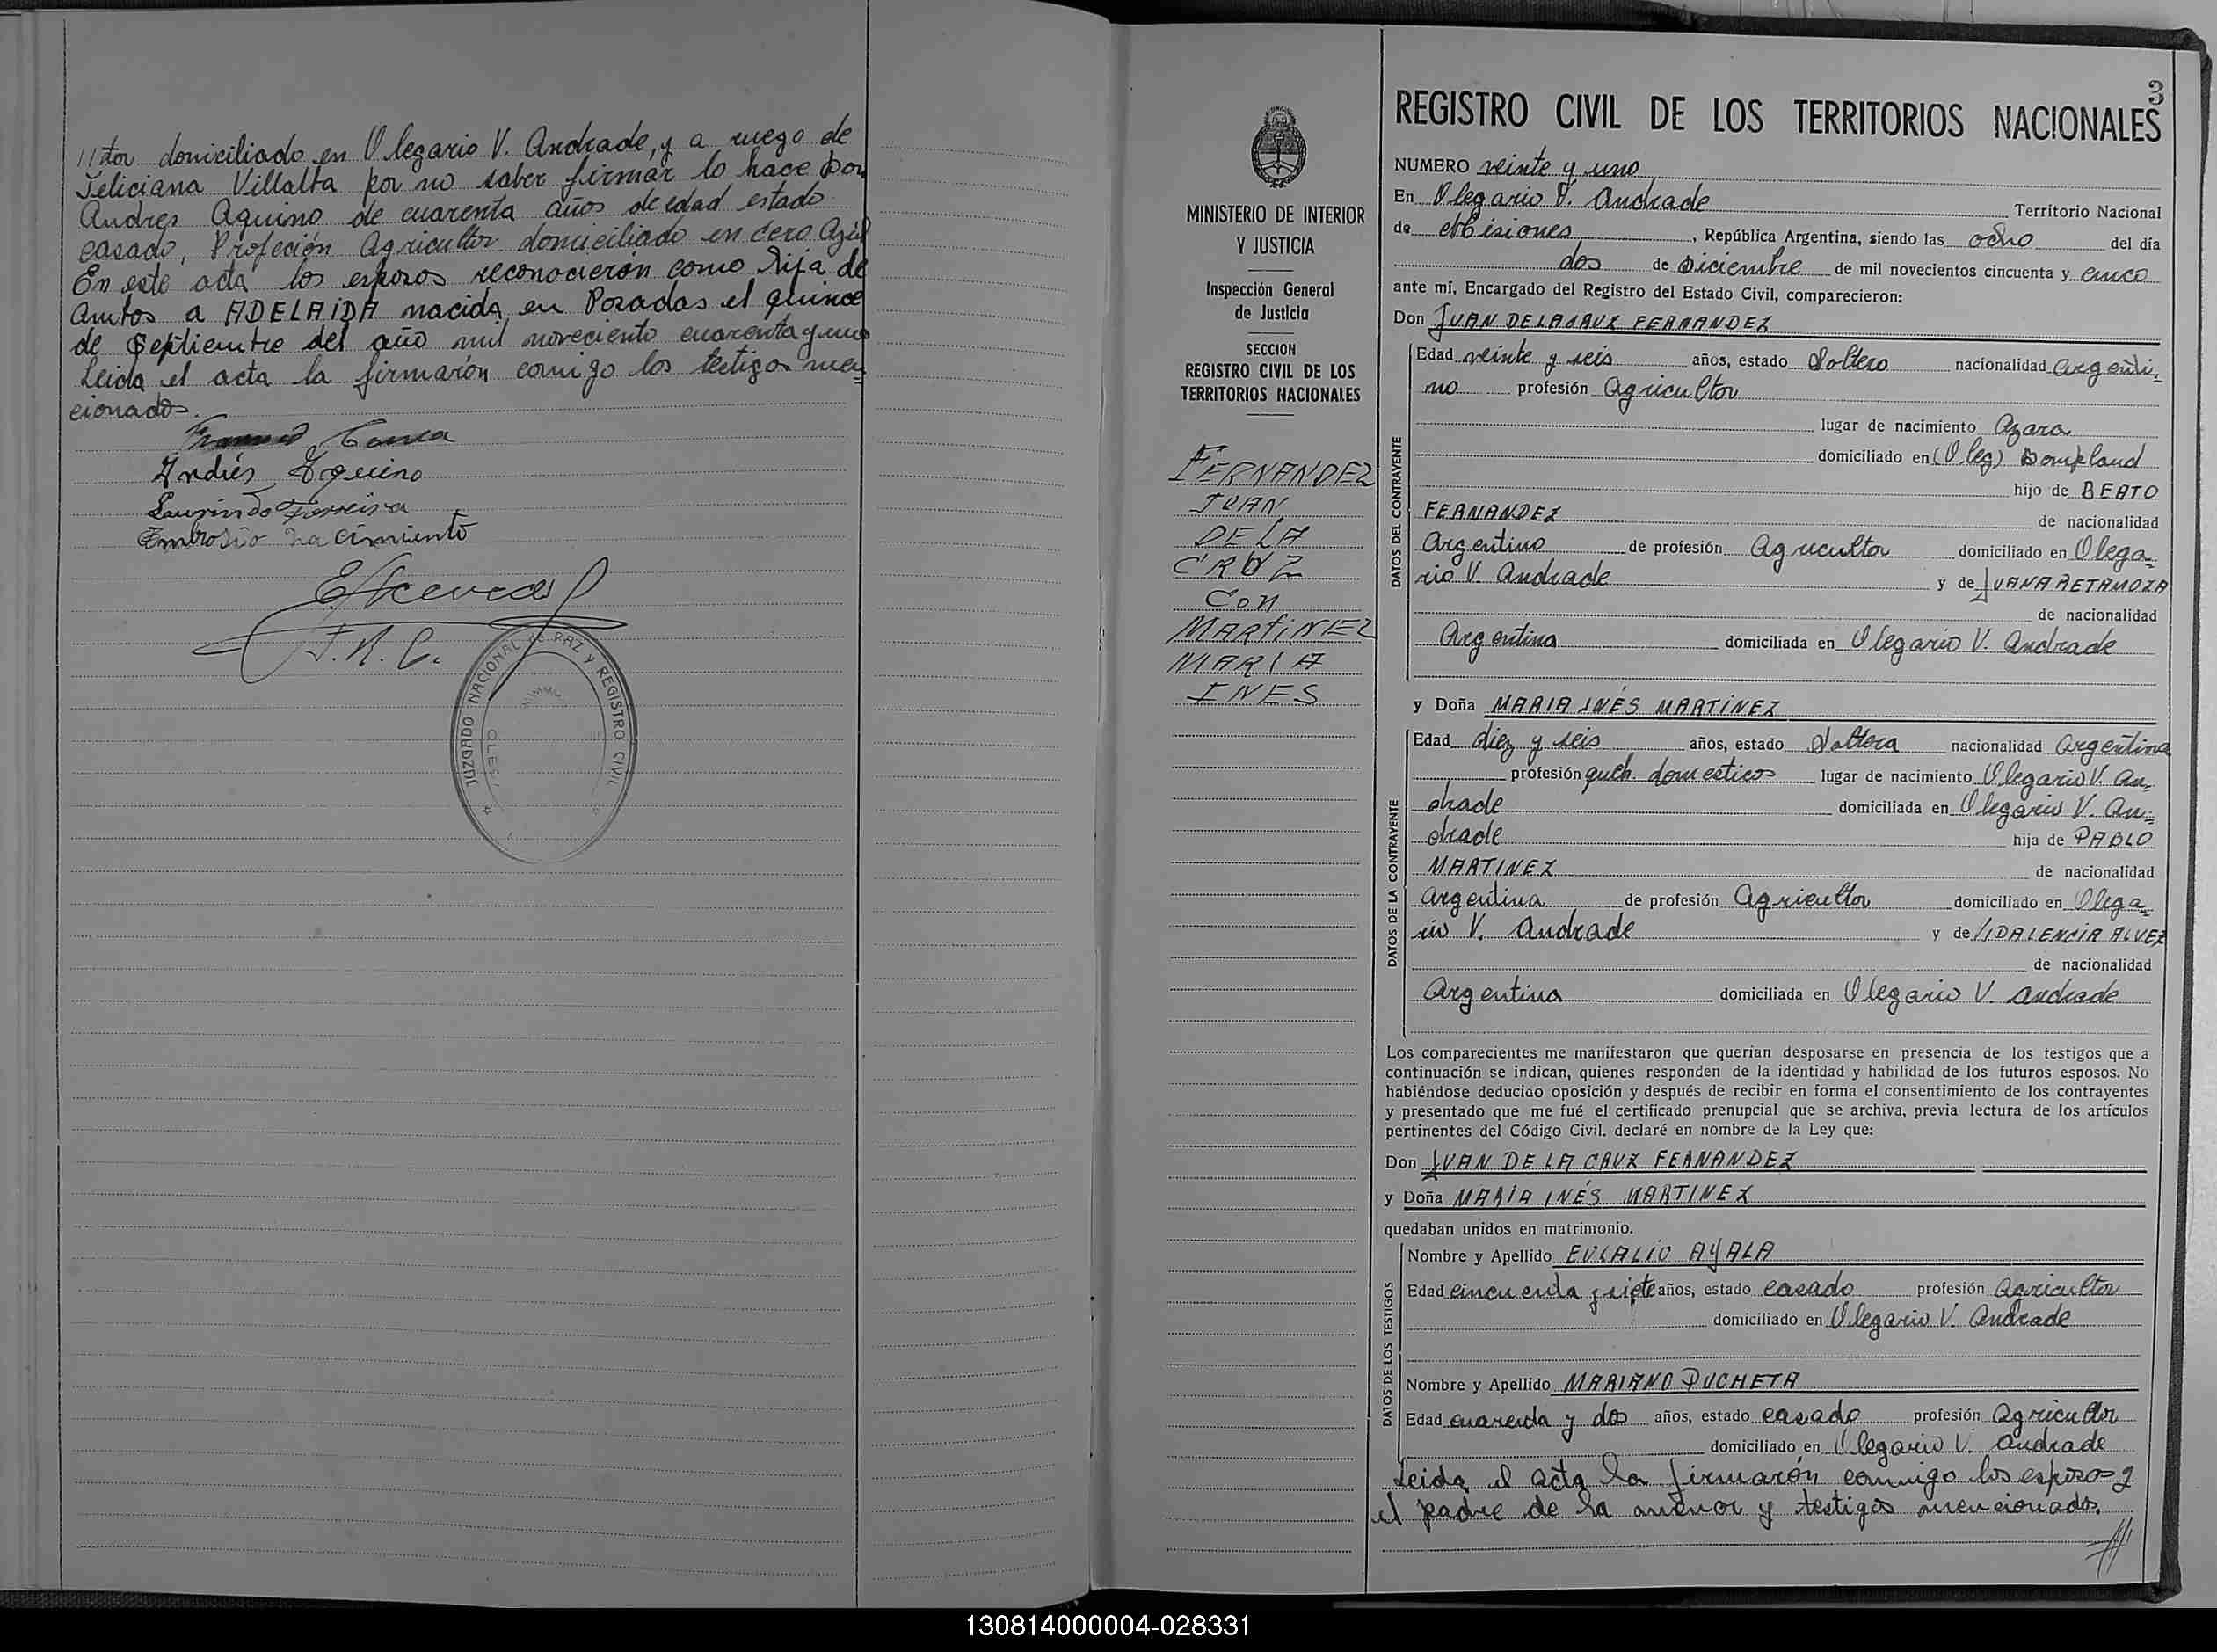 //tor domiciliado en Olegario V. Andrade, y a ruego de
Feliciana Villalta por no saber firmar lo hace Don
Andres Aquino de cuarenta años de edad estado
casado, Profeción Agricultor domiciliado en Cero Azul
En este acta los esposos reconocieron como hija de
ambos a ADELAIDA nacida en Posadas el quince
de Septiembre del año mil noveciento cuarenta y uno
Leida el acta la firmarón comigo los testigos men=
cionados.
Andrés Aquino
Laurindo Ferreira
Ambrosio nacimiento
J.N.C.
JUZGADO NACIONAL DE PAZ Y REGISTRO CIVIL
3
MINISTERIO DE INTERIOR
Y JUSTICIA
Inspección General
de Justicia
SECCION
REGISTRO CIVIL DE LOS
TERRITORIOS NACIONALES
FERNANDEZ
JUAN
DE LA
CRUZ
CON
MARTINEZ
MARIA
INES
REGISTRO CIVIL DE LOS TERRITORIOS NACIONALES
NUMERO veinte y uno
En Olegario V. Andrade Territorio Nacional
de Misiones, República Argentina, siendo las ocho del día
dos de Diciembre de mil novecientos cincuenta y cinco
ante mí, Encargado del Registro del Estado Civil, comparecieron:
Don JUAN DE LA CRUZ FERNANDEZ
DATOS DEL CONTRAYENTE
Edad veinte y seis años, estado Soltero nacionalidad Argenti=
no profesión Agricultor
lugar de nacimiento Azara
domiciliado en (Oleg) Bompland
hijo de BEATO
FERNANDEZ de nacionalidad
Argentino de profesión Agricultor domiciliado en Olega=
rio V. Andrade y de JUANA RETAMOZA
de nacionalidad
Argentina domiciliada en Olegario V. Andrade
y Doña MARIA INÉS MARTÍNEZ
DATOS DE LA CONTRAYENTE
Edad diez y seis años, estado Soltera nacionalidad Argentina
profesión queh. domesticos lugar de nacimiento Olegario V. An=
drade domiciliada en Olegario V. An=
drade hija de PABLO
MARTINEZ de nacionalidad
Argentina de profesión Agricultor domiciliado en Olega=
rio V. Andrade y de LIDALENCIA ALVEZ
de nacionalidad
Argentina domiciliada en Olegario V. Andrade
Los comparecientes me manifestaron que querían desposarse en presencia de los testigos que a
continuación se indican, quienes responden de la identidad y habilidad de los futuros esposos. No
habiéndose deducido oposición y después de recibir en forma el consentimiento de los contrayentes
y presentado que me fué el certificado prenupcial que se archiva, previa lectura de los artículos
pertinentes del Código Civil, declaré en nombre de la Ley que:
Don JUAN DE LA CRUZ FERNANDEZ
y Doña MARÍA INÉS MARTINEZ
quedaban unidos en matrimonio.
DATOS DE LOS TESTIGOS
Nombre y Apellido EULALIO AYALA
Edad cincuenta y siete años, estado casado profesión Agricultor
domiciliado en Olegario V. Andrade
Nombre y Apellido MARIANO PUCHETA
Edad cuarenta y dos años, estado casado profesión Agricultor
domiciliado en Olegario V. Andrade
Leida el acta la firmarón conmigo los esposos y
el padre de la menor y testigos mencionados.
///
130814000004-028331